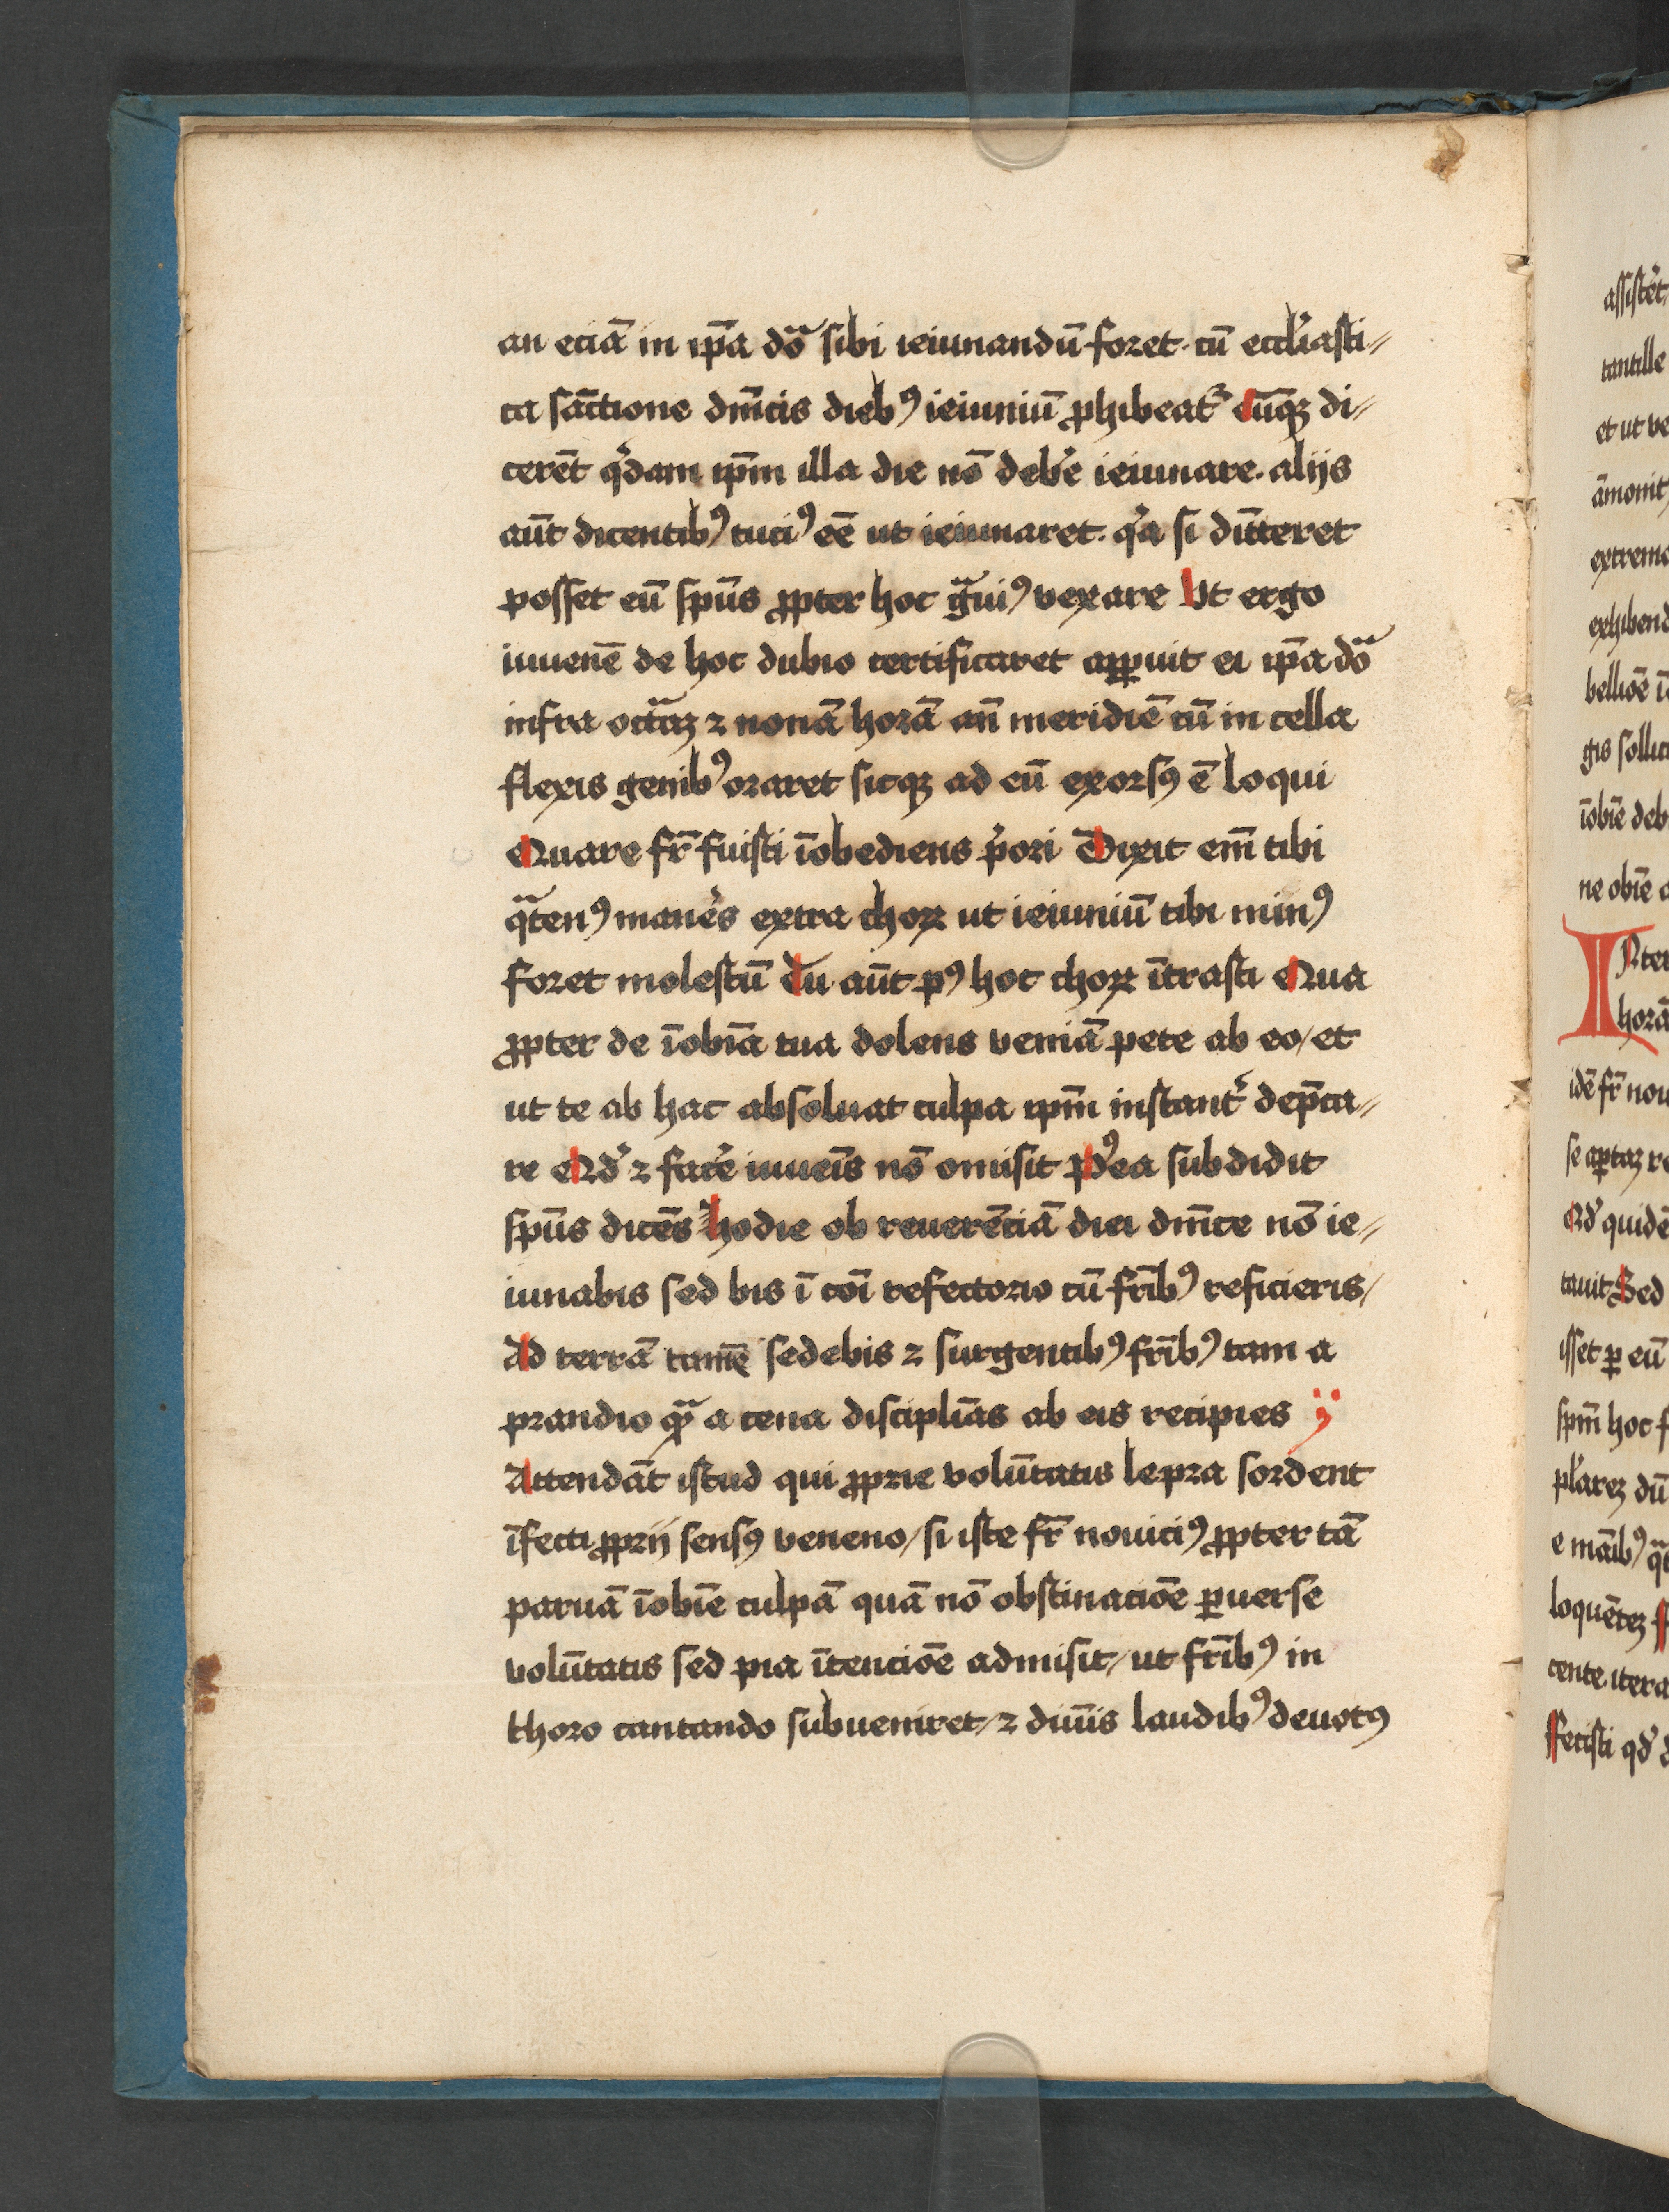 an eciā in ip̄a dōa sibi ieiunandū foret. cū eccl̓iasti⸗
ca sāctione dn̄icis dieb⁹ ieiuniū ꝓhibeat᷑ Cūqꝫ di⸗
cerēt qͥdam ip̄m illa die nō deb̓e ieiunare. alijs
aūt dicentib⁹ tuci⁹ eē ut ieiunaret. qͥa si dīīteret
posset eū sp̄us ꝓpter hoc gͣui⁹ vexare Vt ergo
iuuenē de hoc dubio certificaret aꝑuit ei ip̄a dōa
infra octauāꝫ ⁊ nonā horā an̄ meridiē cū in cella
flexis genib⁹ oraret sicqꝫ ad eū exorsꝰ ē loqui
Quare fr̄ fuisti īobediens pͥori Dixit em̄ tibi
qͣten⁹ manēs extra choꝝ ut ieiuniū tibi min⁹
foret molestū Tu aūt pꝰ hoc choꝝ ītrasti Qua
ꝓpter de īobīa tua dolens veniā pete ab eo / et
ut te ab hac absoluat culpa ip̄m instant᷑ dep̄ca⸗
re Qd̓ ⁊ fac̓e iuueīs nō omisit P⁹ea subdidit
sp̄us dicēs Hodie ob reuerēciā diei dn̄ice nō ie⸗
iunabis sed bis ī cōi refectorio cū fr̄ib⁹ reficieris /
Ad terrā tamē sedebis ⁊ surgentib⁹ fr̄ib⁹ tam a
prandio qͣ̄ a cena discipliās ab eis recipies ÿ
Attendāt istud qui ꝓprie volūtatis lepra sordent
īfecti ꝓprij sensꝰ veneno / si iste fr̄ nouici⁹ ꝓpter tā
paruā īobīe culpā quā nō obstinaciōe ꝑuerse
volūtatis sed pia ītenciōe admisit / ut fr̄ib⁹ in
choro cantando subueniret / ⁊ diuīs laudib⁹ deuotꝰ
assist̓et
tantille
et ut ve
āmonit
extrem
exhibend
belliōe ī
gis sollic
īobīe deb
ne obīe
INter
horā
idē fr̄ nou
se aꝑtaꝫ re
Qd̓ quidē
tauit Sed
isset ꝑ eū
sp̄m hoc f
pl̓areꝫ dū
e māib⁹ qͣ
loquēteꝫ
cente itera
Fecisti qd̓ d